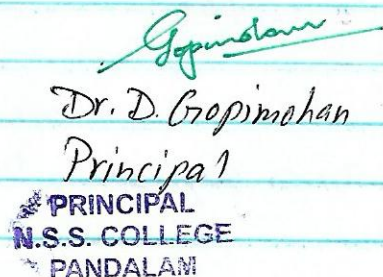 Gopimohan
Dr. D. Gopimohan
Principal
PRINCIPAL
N.S.S. COLLEGE
PANDALAM